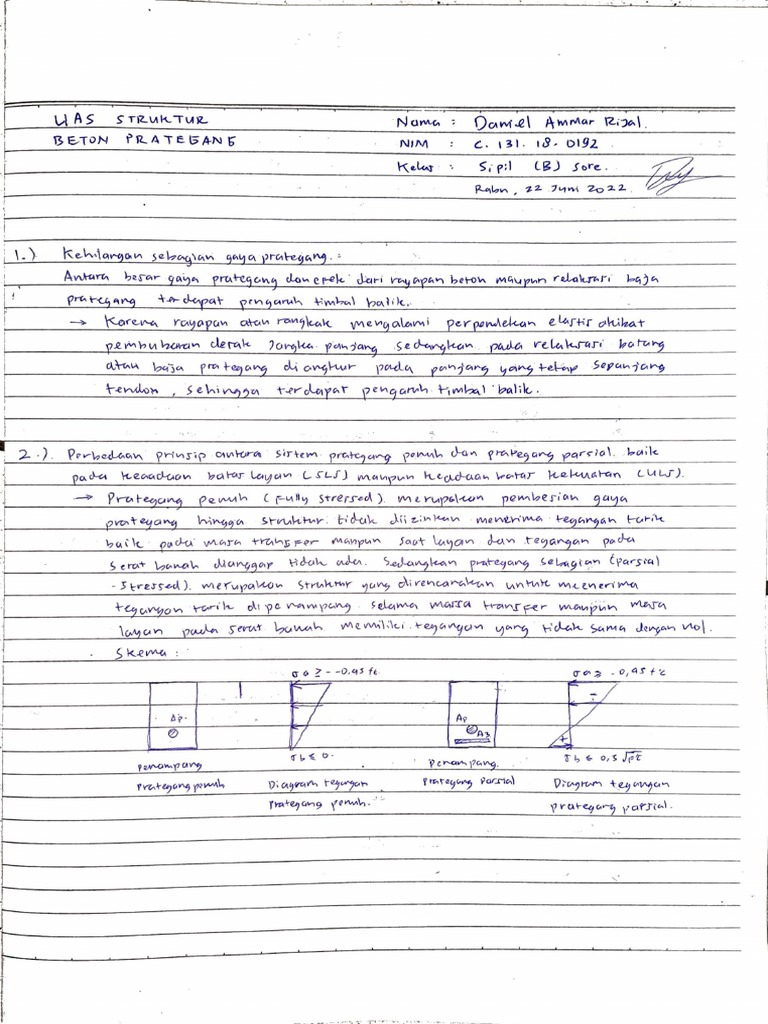 UAS STRUKTUR
BETON PRATEGANG
Nama : Daniel Ammar Rijal.
NIM : C. 131. 18. 0192
Kelas : Sipil (B) Sore.
Rabu, 22 Juni 2022
1.) Kehilangan sebagian gaya prategang. :
Antara besar gaya prategang dan efek dari rayapan beton maupun relaksasi baja
prategang terdapat pengaruh timbal balik.
→ Karena rayapan atau rangkak mengalami perpendekan elastis akibat
pembebanan desak jangka panjang sedangkan pada relaksasi batang
atau baja prategang diangkur pada panjang yang tetap sepanjang
tendon, sehingga terdapat pengaruh timbal balik.
2.). Perbedaan prinsip antara sistem prategang penuh dan prategang parsial. baik
pada keadaan batas layan (SLS) maupun keadaan batas kekuatan (ULS).
→ Prategang penuh (Fully stressed). merupakan pemberian gaya
prategang hingga struktur tidak diizinkan menerima tegangan tarik
baik pada masa transfer maupun saat layan dan tegangan pada
serat bawah dianggap tidak ada. Sedangkan prategang sebagian (parsial
-stressed). merupakan struktur yang direncanakan untuk menerima
tegangan tarik di penampang selama massa transfer maupun masa
layan pada serat bawah memiliki tegangan yang tidak sama dengan nol.
Skema :
σa ≥ -0,45 fc
σa ≥ -0,45 f'c
Ap.
Ap
As
-
+
σb ≤ 0.
σb ≤ 0,5 √f'c
Penampang
Prategang penuh
Diagram tegangan
Prategang penuh.
Penampang.
Prategang Parsial
Diagram tegangan
prategang parsial.